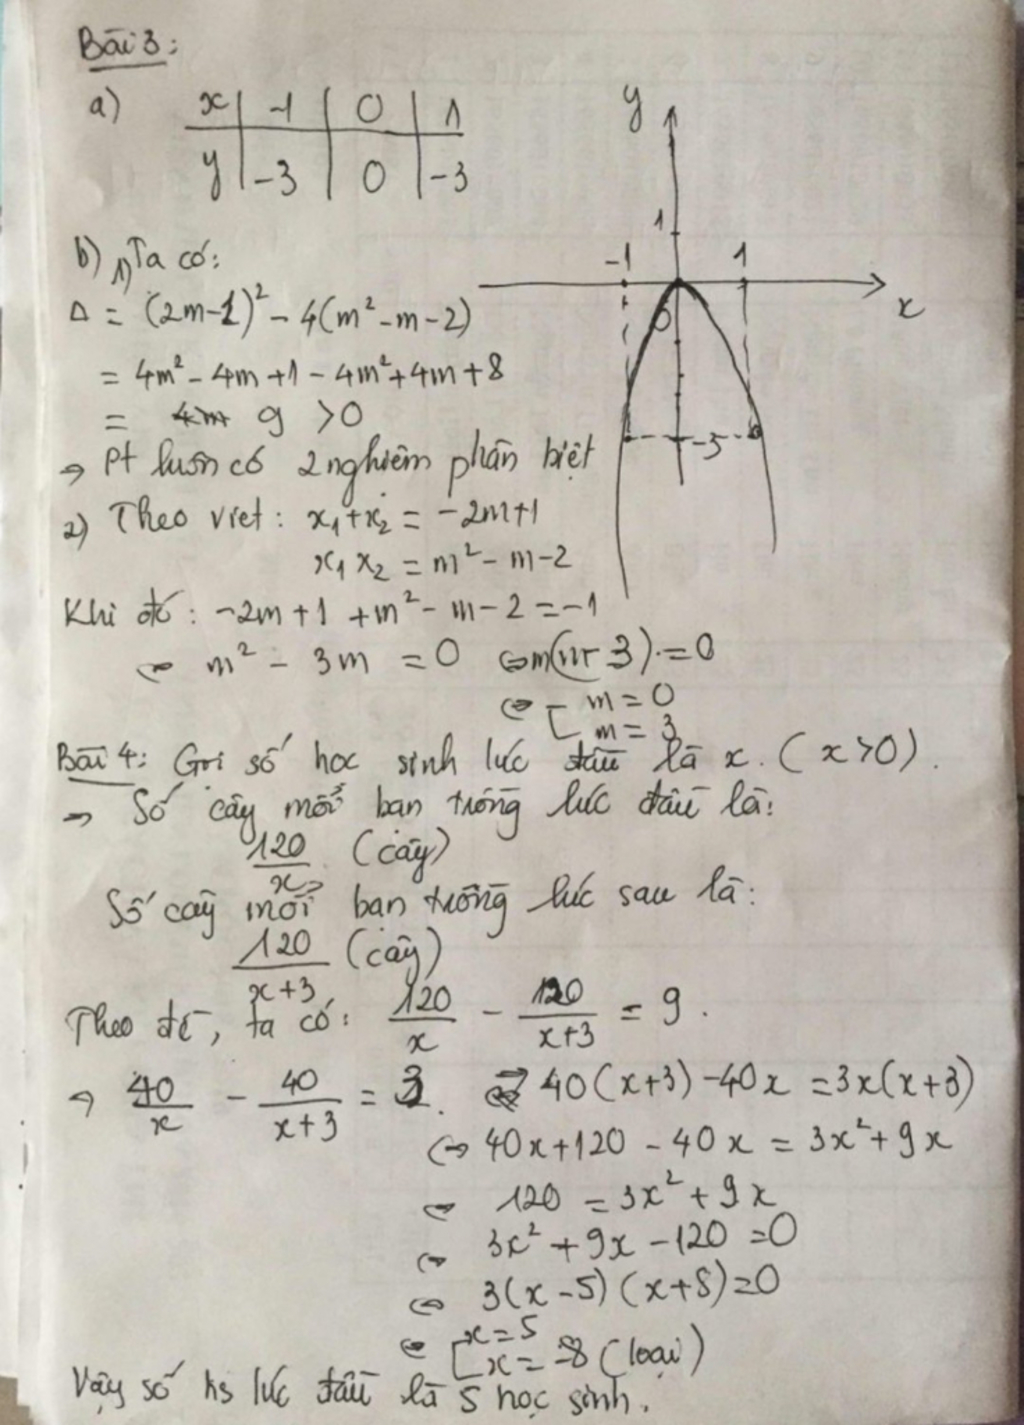 Bài 3:
a) x | -1 | 0 | 1
y | -3 | 0 | -3
y
1
-1 1
x
0
-3
b) 1) Ta có:
Δ = (2m-1)² - 4(m² - m - 2)
= 4m² - 4m + 1 - 4m² + 4m + 8
= 4m 9 > 0
⇒ Pt luôn có 2 nghiệm phân biệt
2) Theo viet: x₁ + x₂ = -2m+1
x₁ x₂ = m² - m - 2
Khi đó: -2m + 1 + m² - m - 2 = -1
⇔ m² - 3m = 0 ⇔ m(m - 3) = 0
⇔ [ m = 0
m = 3
Bài 4: Gọi số học sinh lúc đầu là x. (x > 0).
⇒ Số cây mỗi bạn trồng lúc đầu là:
120/x (cây)
Số cây mỗi bạn trồng lúc sau là:
120/(x+3) (cây)
Theo đề, ta có: 120/x - 120/(x+3) = 9.
⇒ 40/x - 40/(x+3) = 3. ⇔ 40(x+3) - 40x = 3x(x+3)
⇔ 40x + 120 - 40x = 3x² + 9x
⇔ 120 = 3x² + 9x
⇔ 3x² + 9x - 120 = 0
⇔ 3(x-5)(x+8) = 0
⇔ [ x = 5
x = -8 (loại)
Vậy số hs lúc đầu là 5 học sinh.